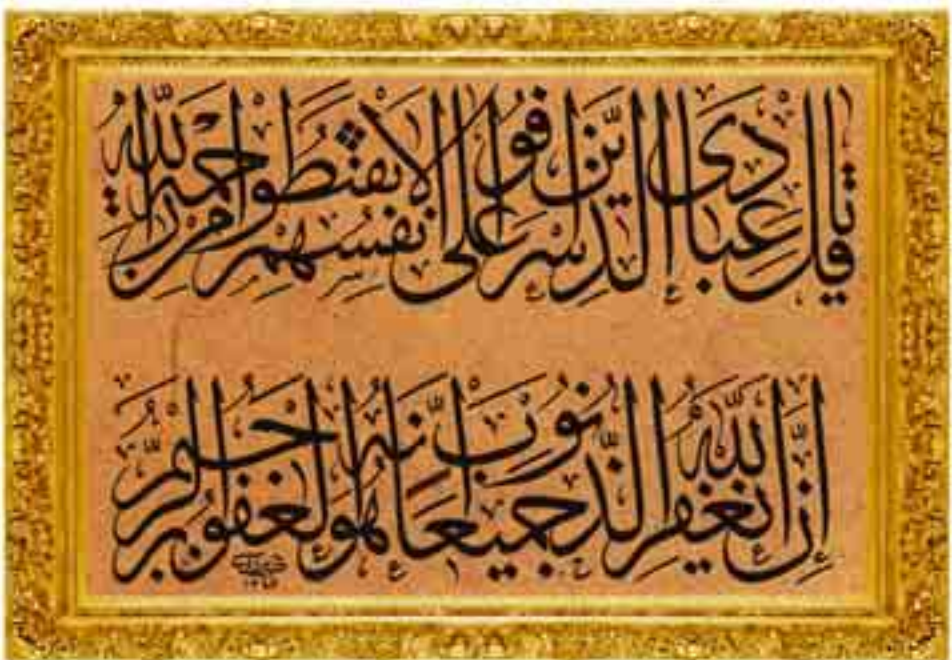 قل يا عبادي الذين اسرفوا على انفسهم لا تقنطوا من رحمة الله
ان الله يغفر الذنوب جميعا انه هو الغفور الرحيم